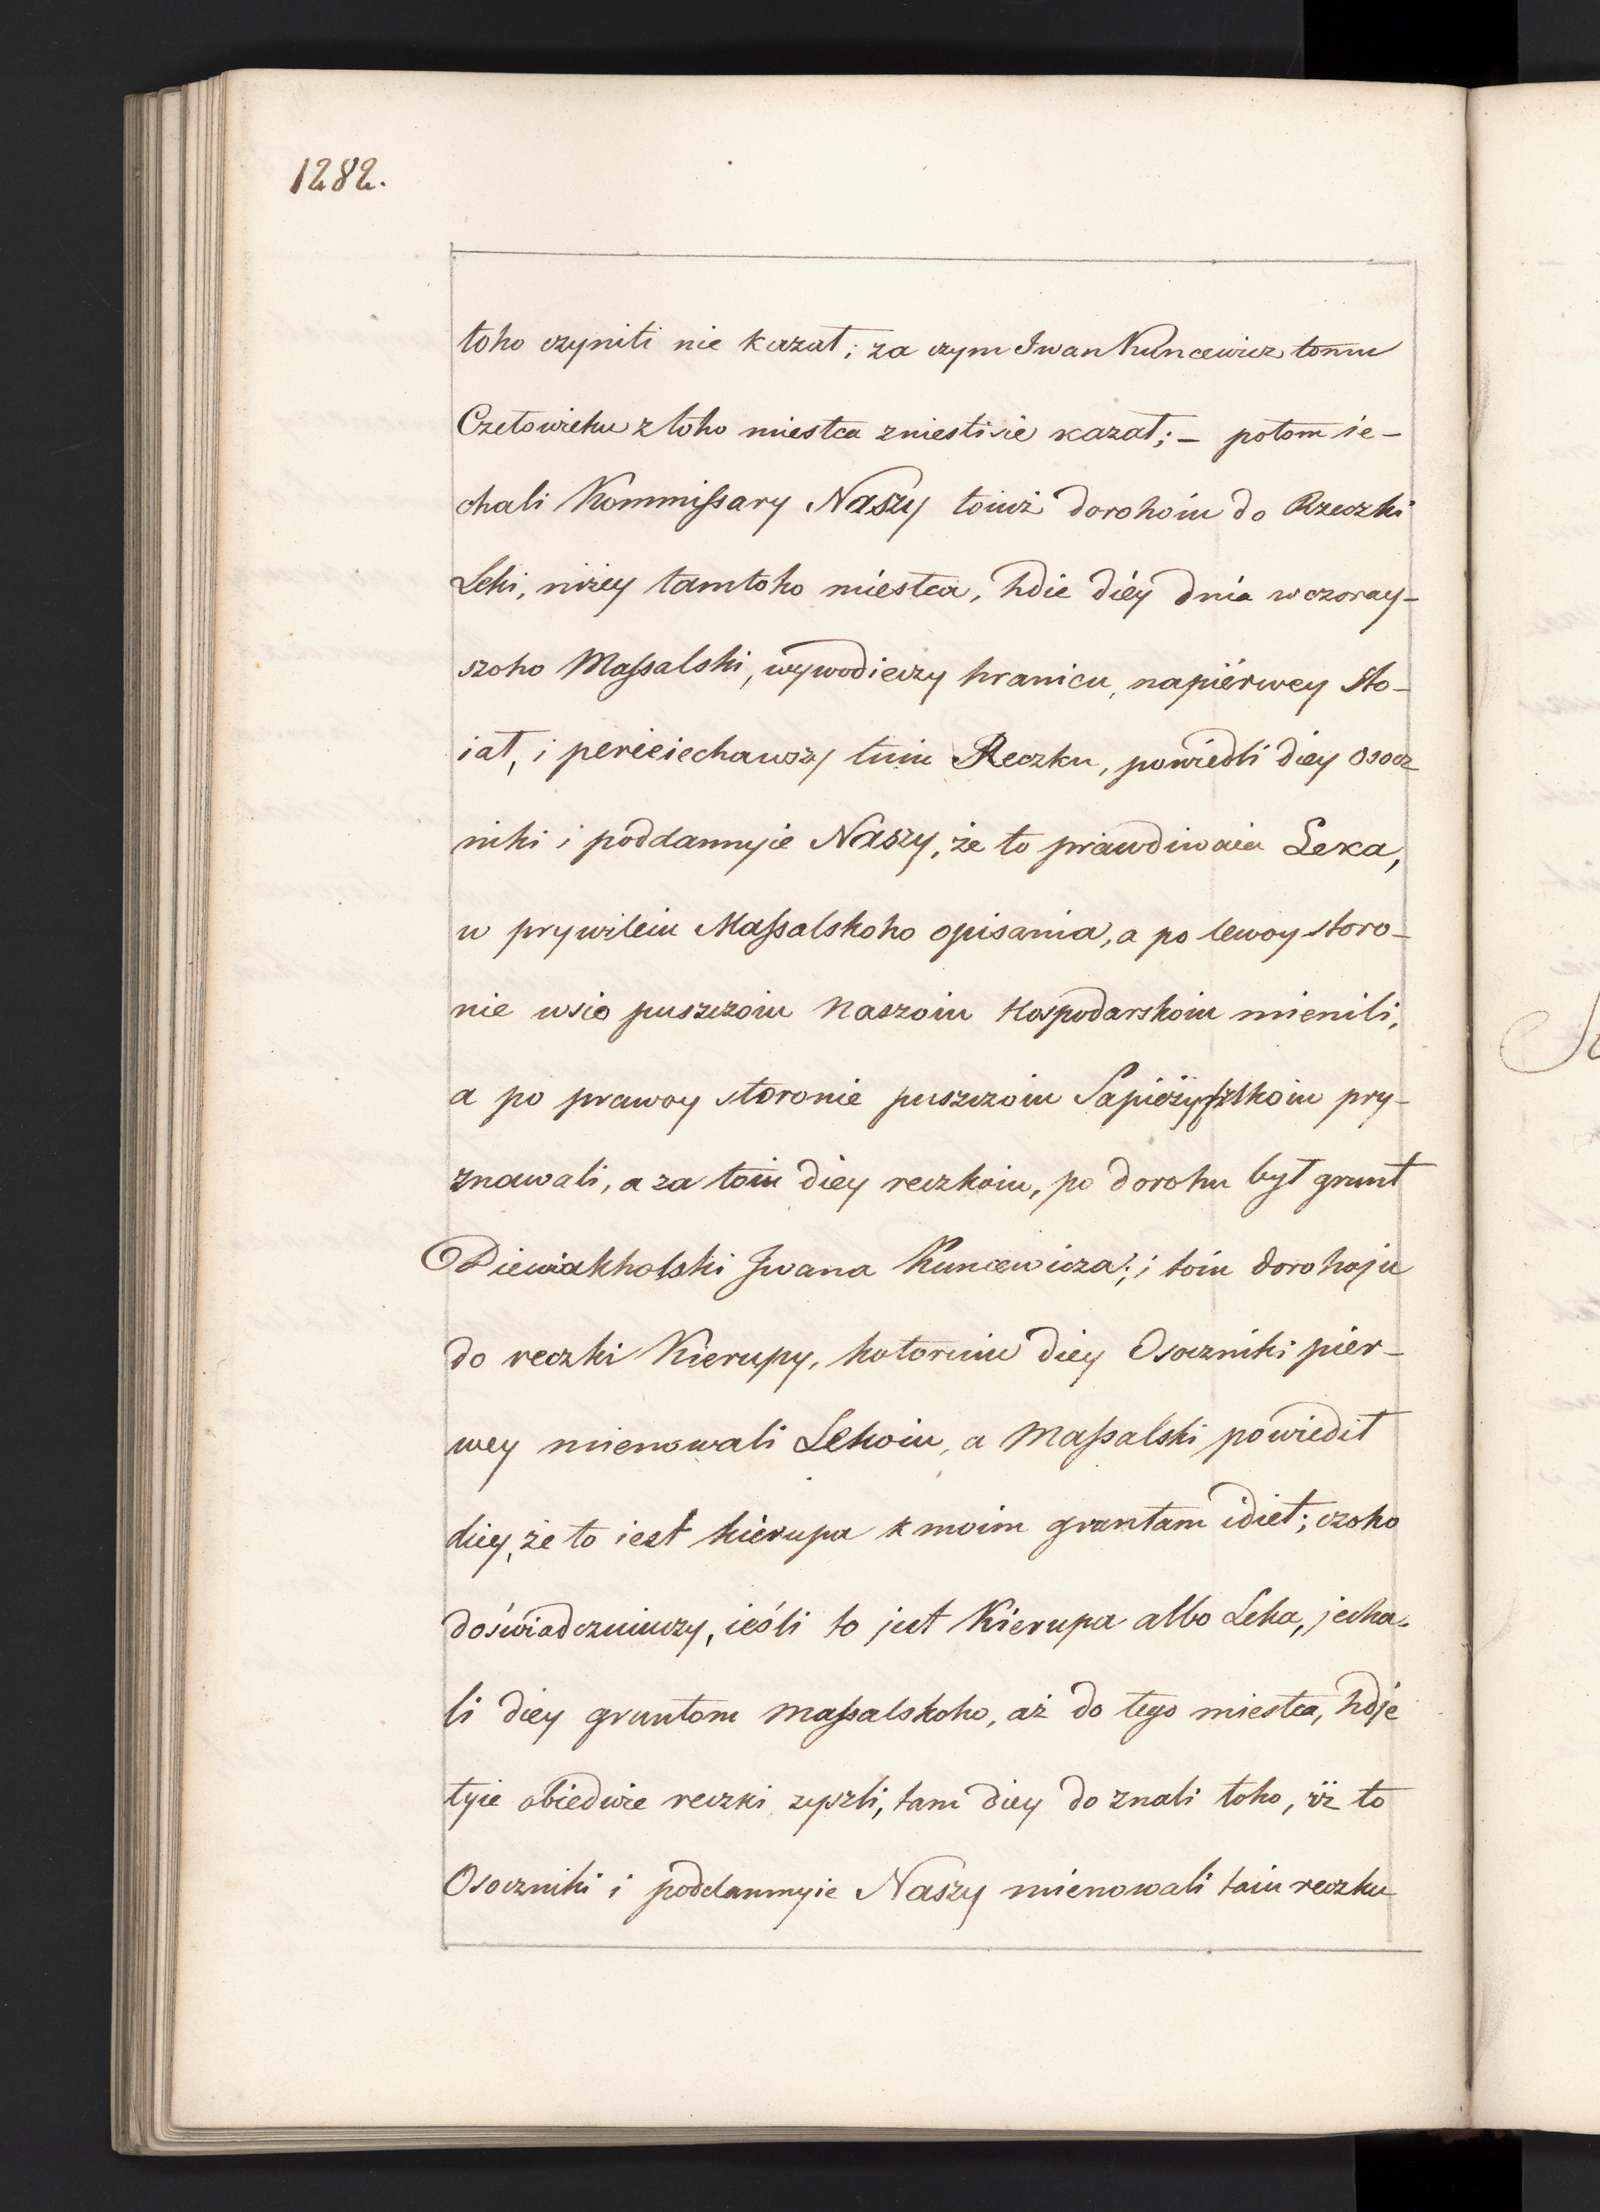 1282.
toho czyniti nie kazał; za czym Iwan Kuncewicz tomu
Czełowieku z toho miestca zniestisie kazał; – potom ie-
chali Kommissary Naszy toiuż dorohoiu do Rzeczki
Leki, niżey tamtoho miestca, hdie diéy dnia wczoray-
szoho Massalski, wywodieczy hranicu, napiérwey sto-
iał, i pereieiechawszy tuiu Reczku, powiedli diey osocz
niki i poddannyie Naszy, że to prawdiwaia Leka,
w prywileiu Massalskoho opisania, a po lewoy storo-
nie wsio puszczoiu Naszoiu Hospodarskoiu mienili,
a po prawoy storonie puszczoiu Sapieżyńskoiu pry-
znawali, a za toiu diey reczkoiu, po dorohu był grunt
Dziewiakholski Iwana Kuncewicza; i toiu dorohoju
do reczki Kierupy, kotoruiu diey Osoczniki pier-
wey mienowali Lekoiu, a Massalski powiedił
diey, że to iest kierupa k moim gruntam idiet; czoho
doświadczuiuczy, ieśli to jest Kierupa albo Leka, jecha-
li diey gruntom Massalskoho, aż do tego miestca, hdje
tyie obiedwie reczki zyszli, tam diey do znali toho, iż to
Osoczniki i poddannyie Naszy mienowali taiu reczku